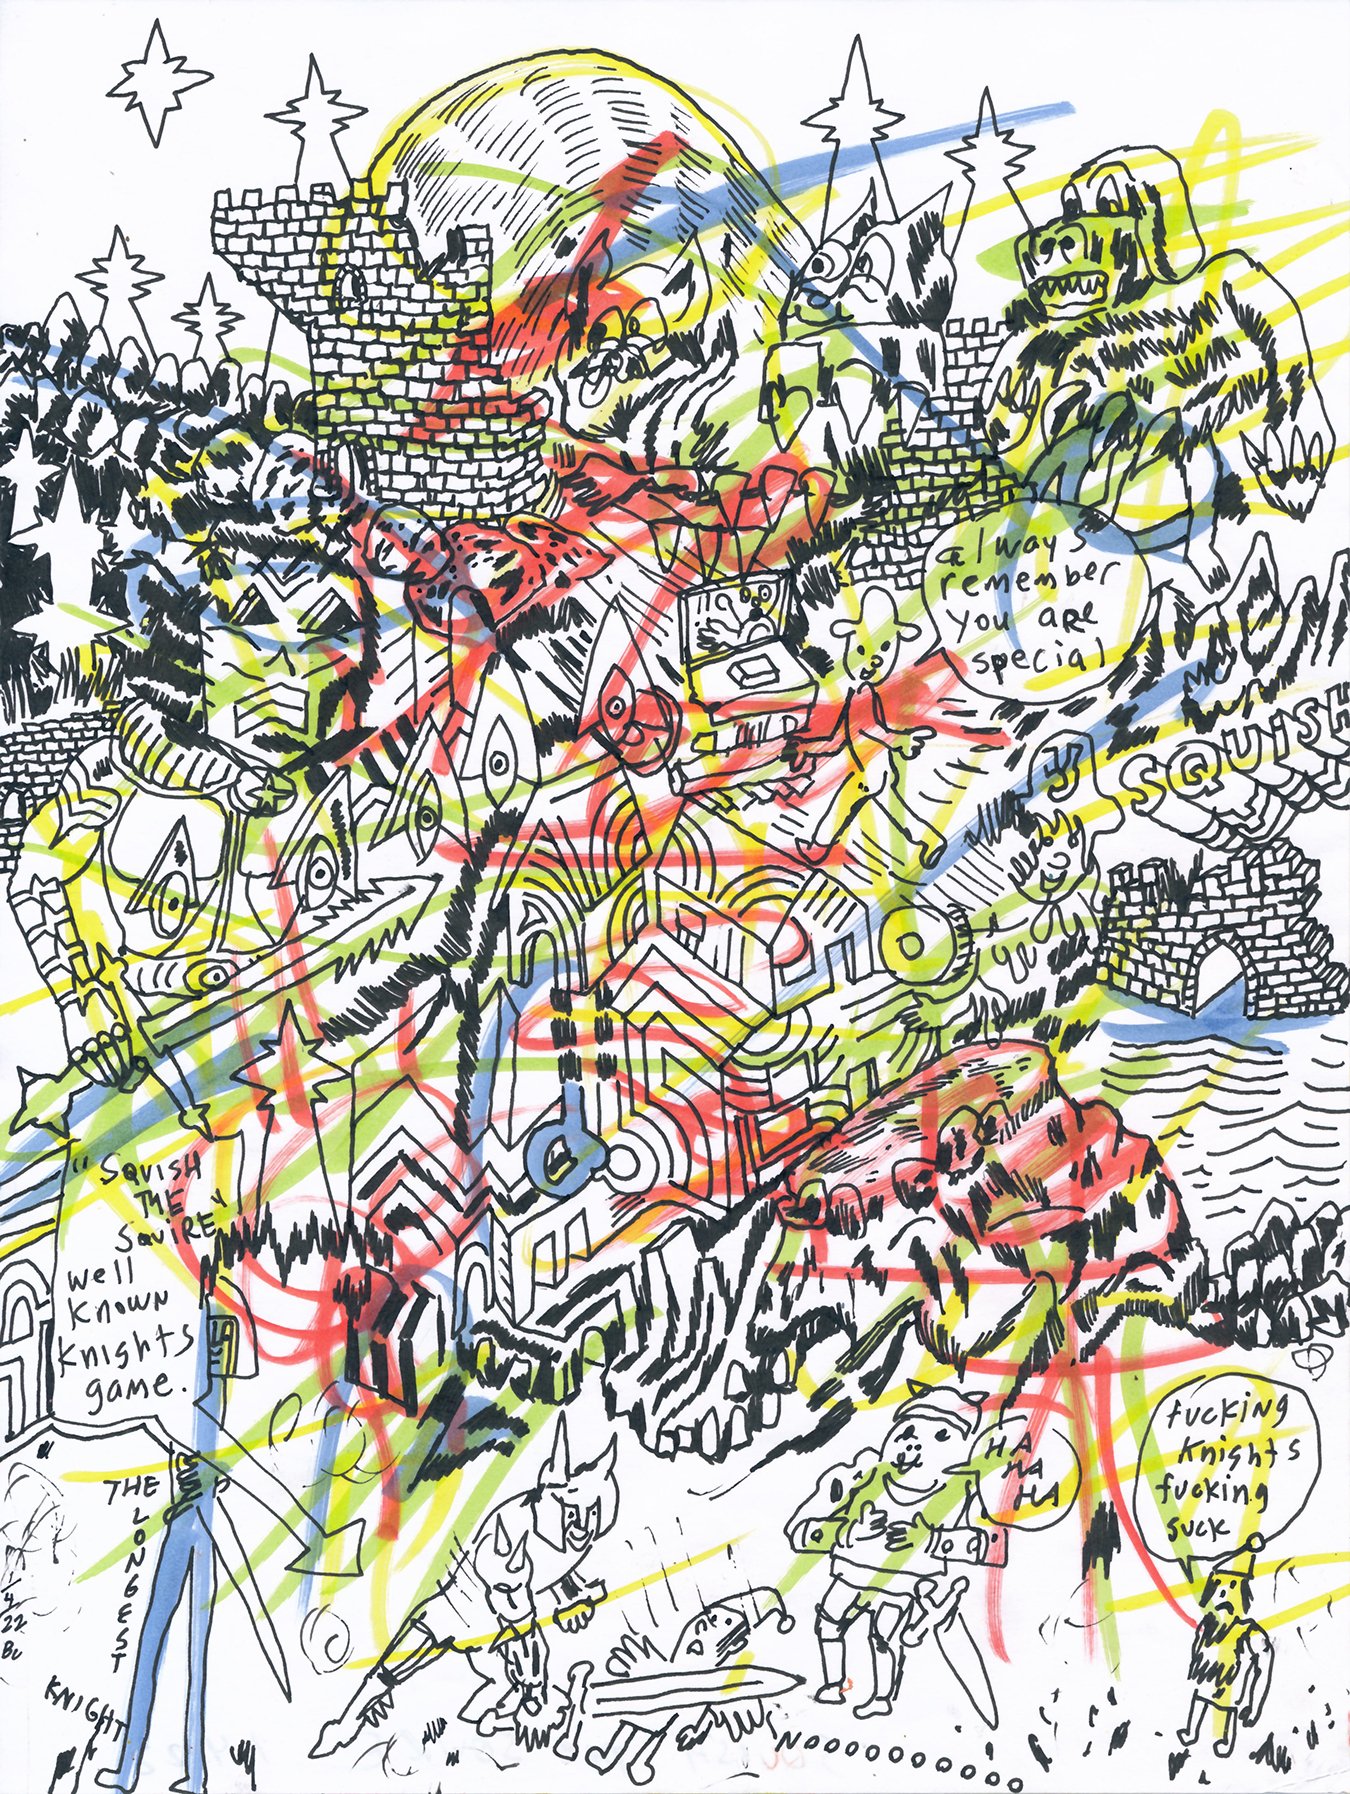 always
remember
you are
special
SQUISH
"SQUISH
THE
SQUIRE"
well
known
knights
game.
THE
LONGEST
KNIGHT
1
4
22
BU
HA
HA
HA
fucking
knights
fucking
suck
NOOOOOOOOO